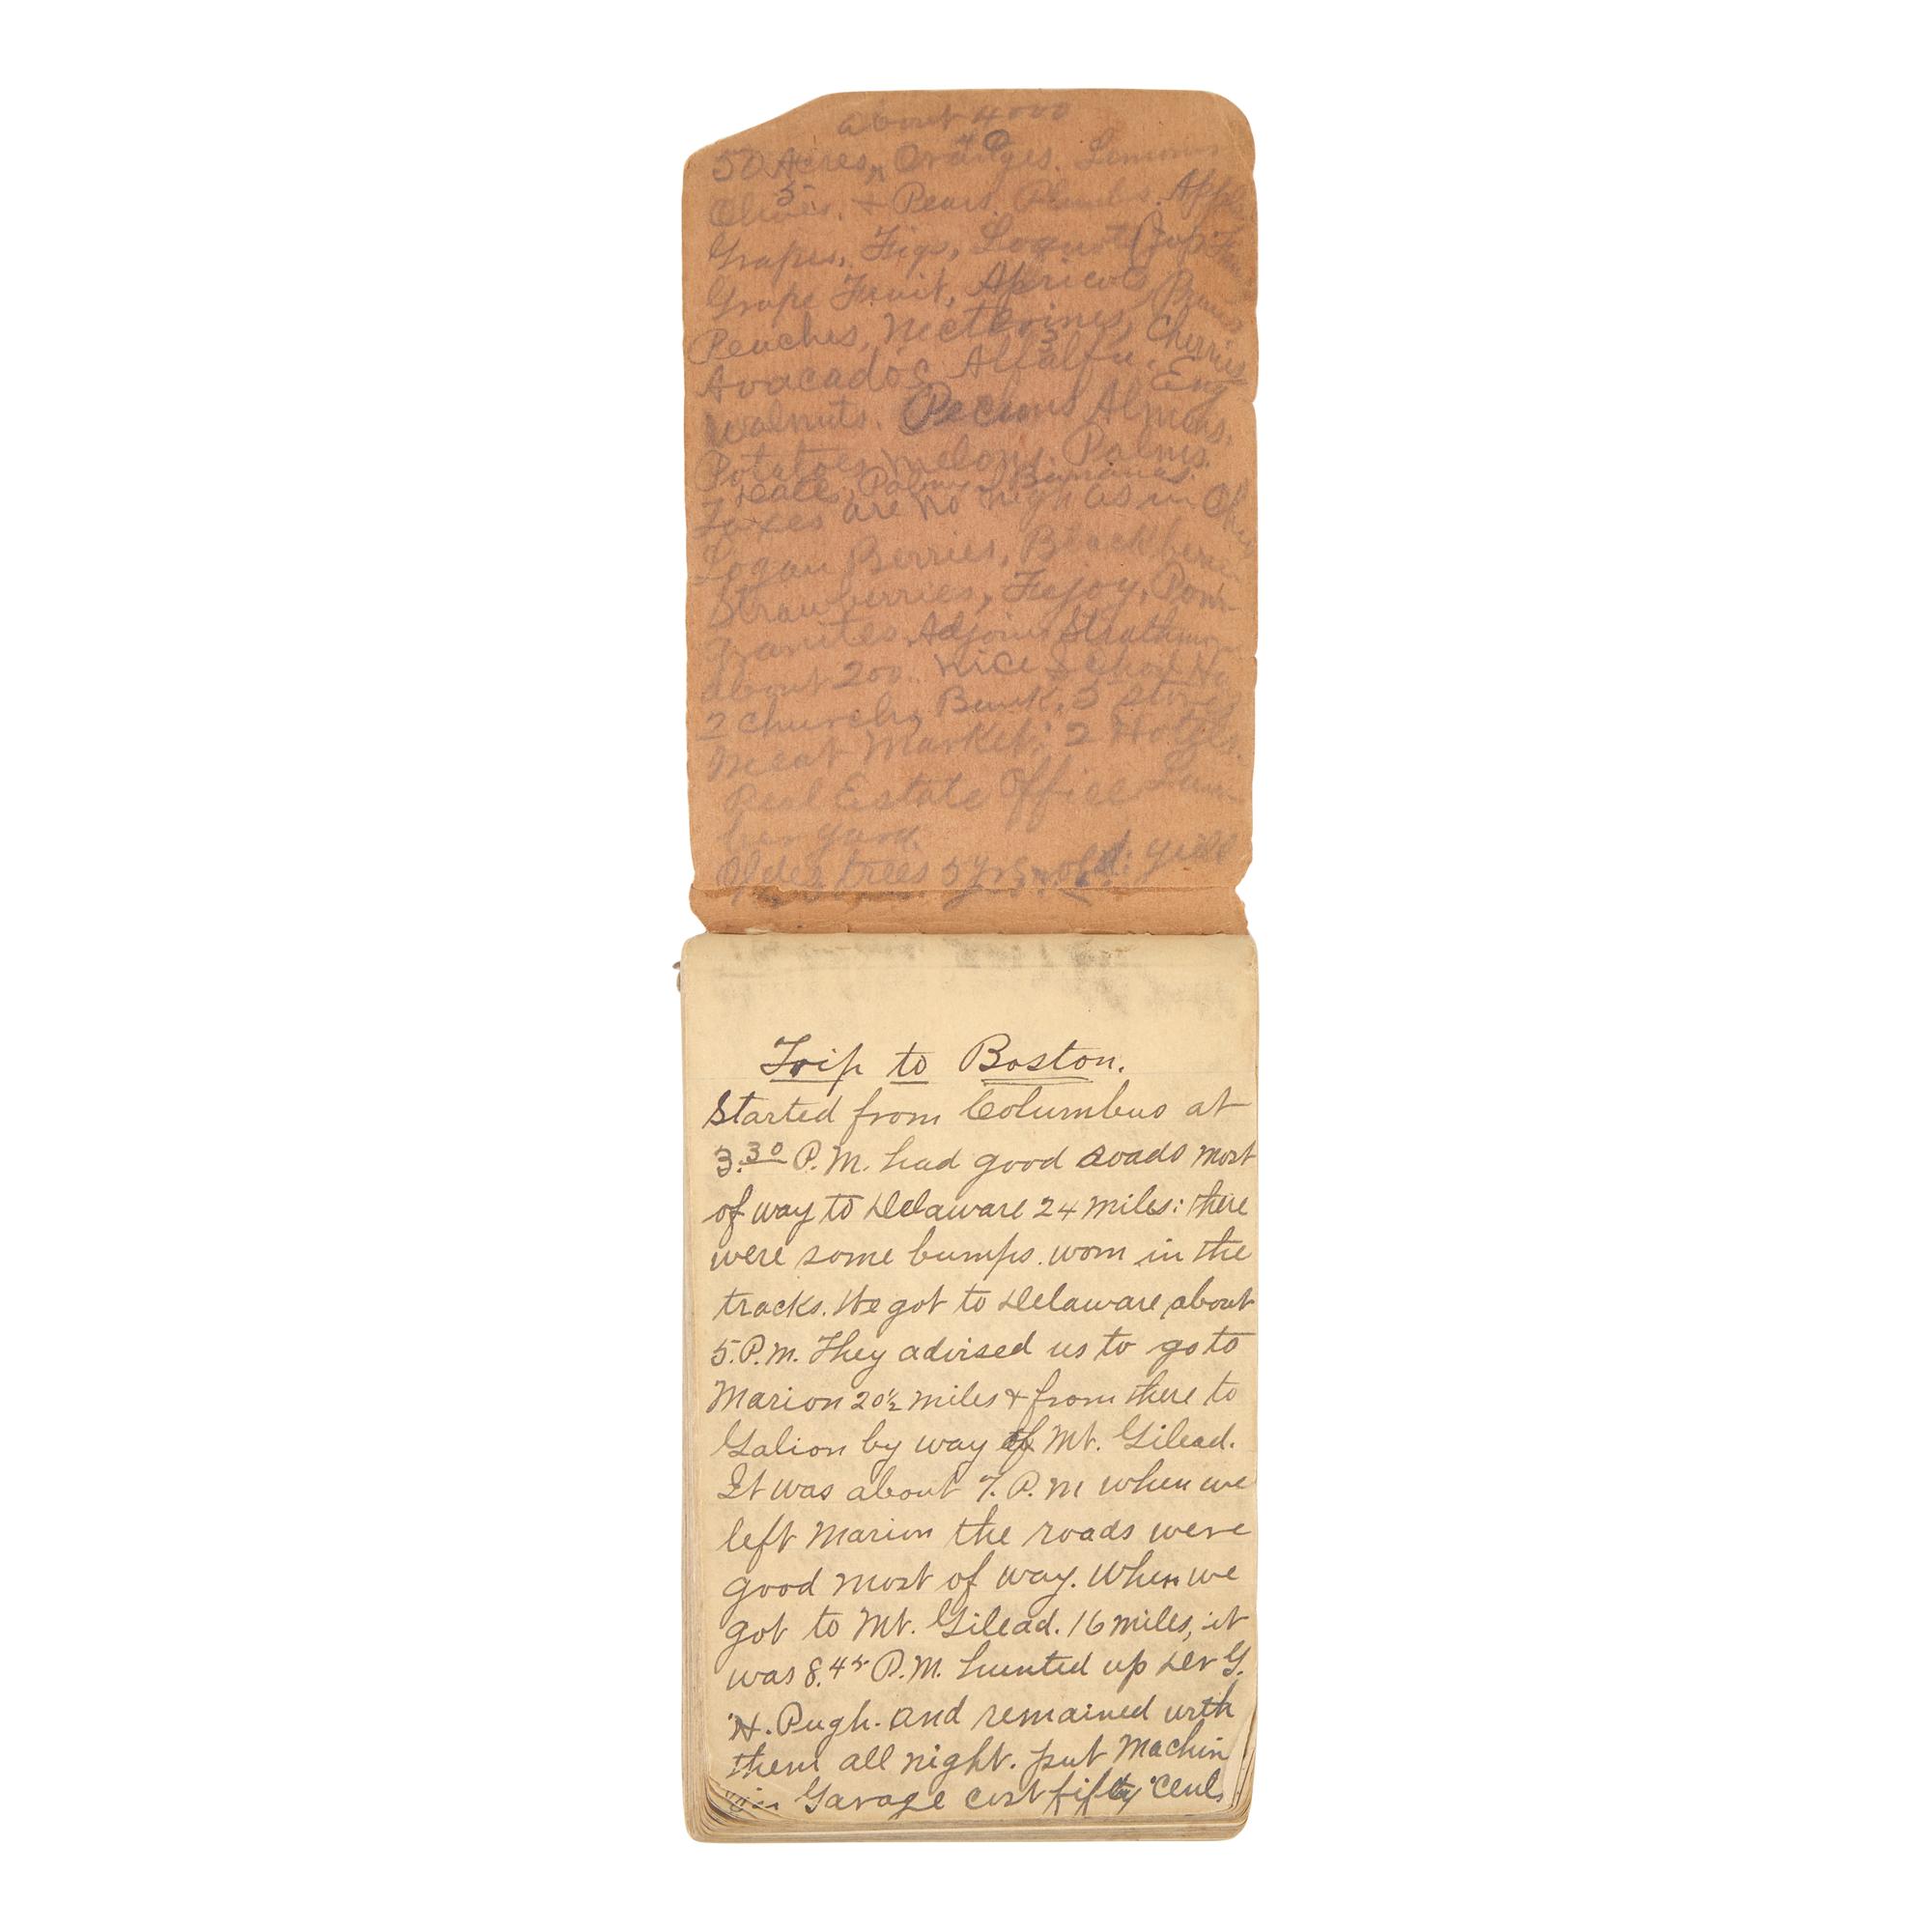 about 4000
50 Acres, Oranges. Lemons
Olives. + Pears. Plumbs. Apple
Grapes, Figs, Loquots (Jap
Grape Fruit, Apricots, Prunes
Peaches, Necterines, Cherries
Avacados Alfalfa. Eng
Walnuts. Pecans Almons.
Potatoes, Melons. Palms.
Dates, Palms, Bananas.
Taxes are no high as in Ohio
Logan Berries, Blackberrie
Strawberries, Fejoy, Pom-
granites Adjoins Strathmore
about 200. Nice School Ho
2 Churchs, Bank, 3 Stores
Meat Market; 2 Hotels.
Real Estate Office Lum-
ber yard.
Older trees 5 yrs. old: yield
Trip to Boston.
Started from Columbus at
3.30 P.M. had good roads most
of way to Delaware 24 miles: there
were some bumps. worn in the
tracks. We got to Delaware about
5.P.M. They advised us to go to
Marion 20½ miles & from there to
Galion by way of Mt. Gilead.
It was about 7. P.M when we
left Marion the roads were
good most of way. When we
got to Mt. Gilead. 16 miles, it
was 8.45 P.M. hunted up Der G.
H. Pugh. and remained with
them all night. put Machin
in Garage cost fifty cents